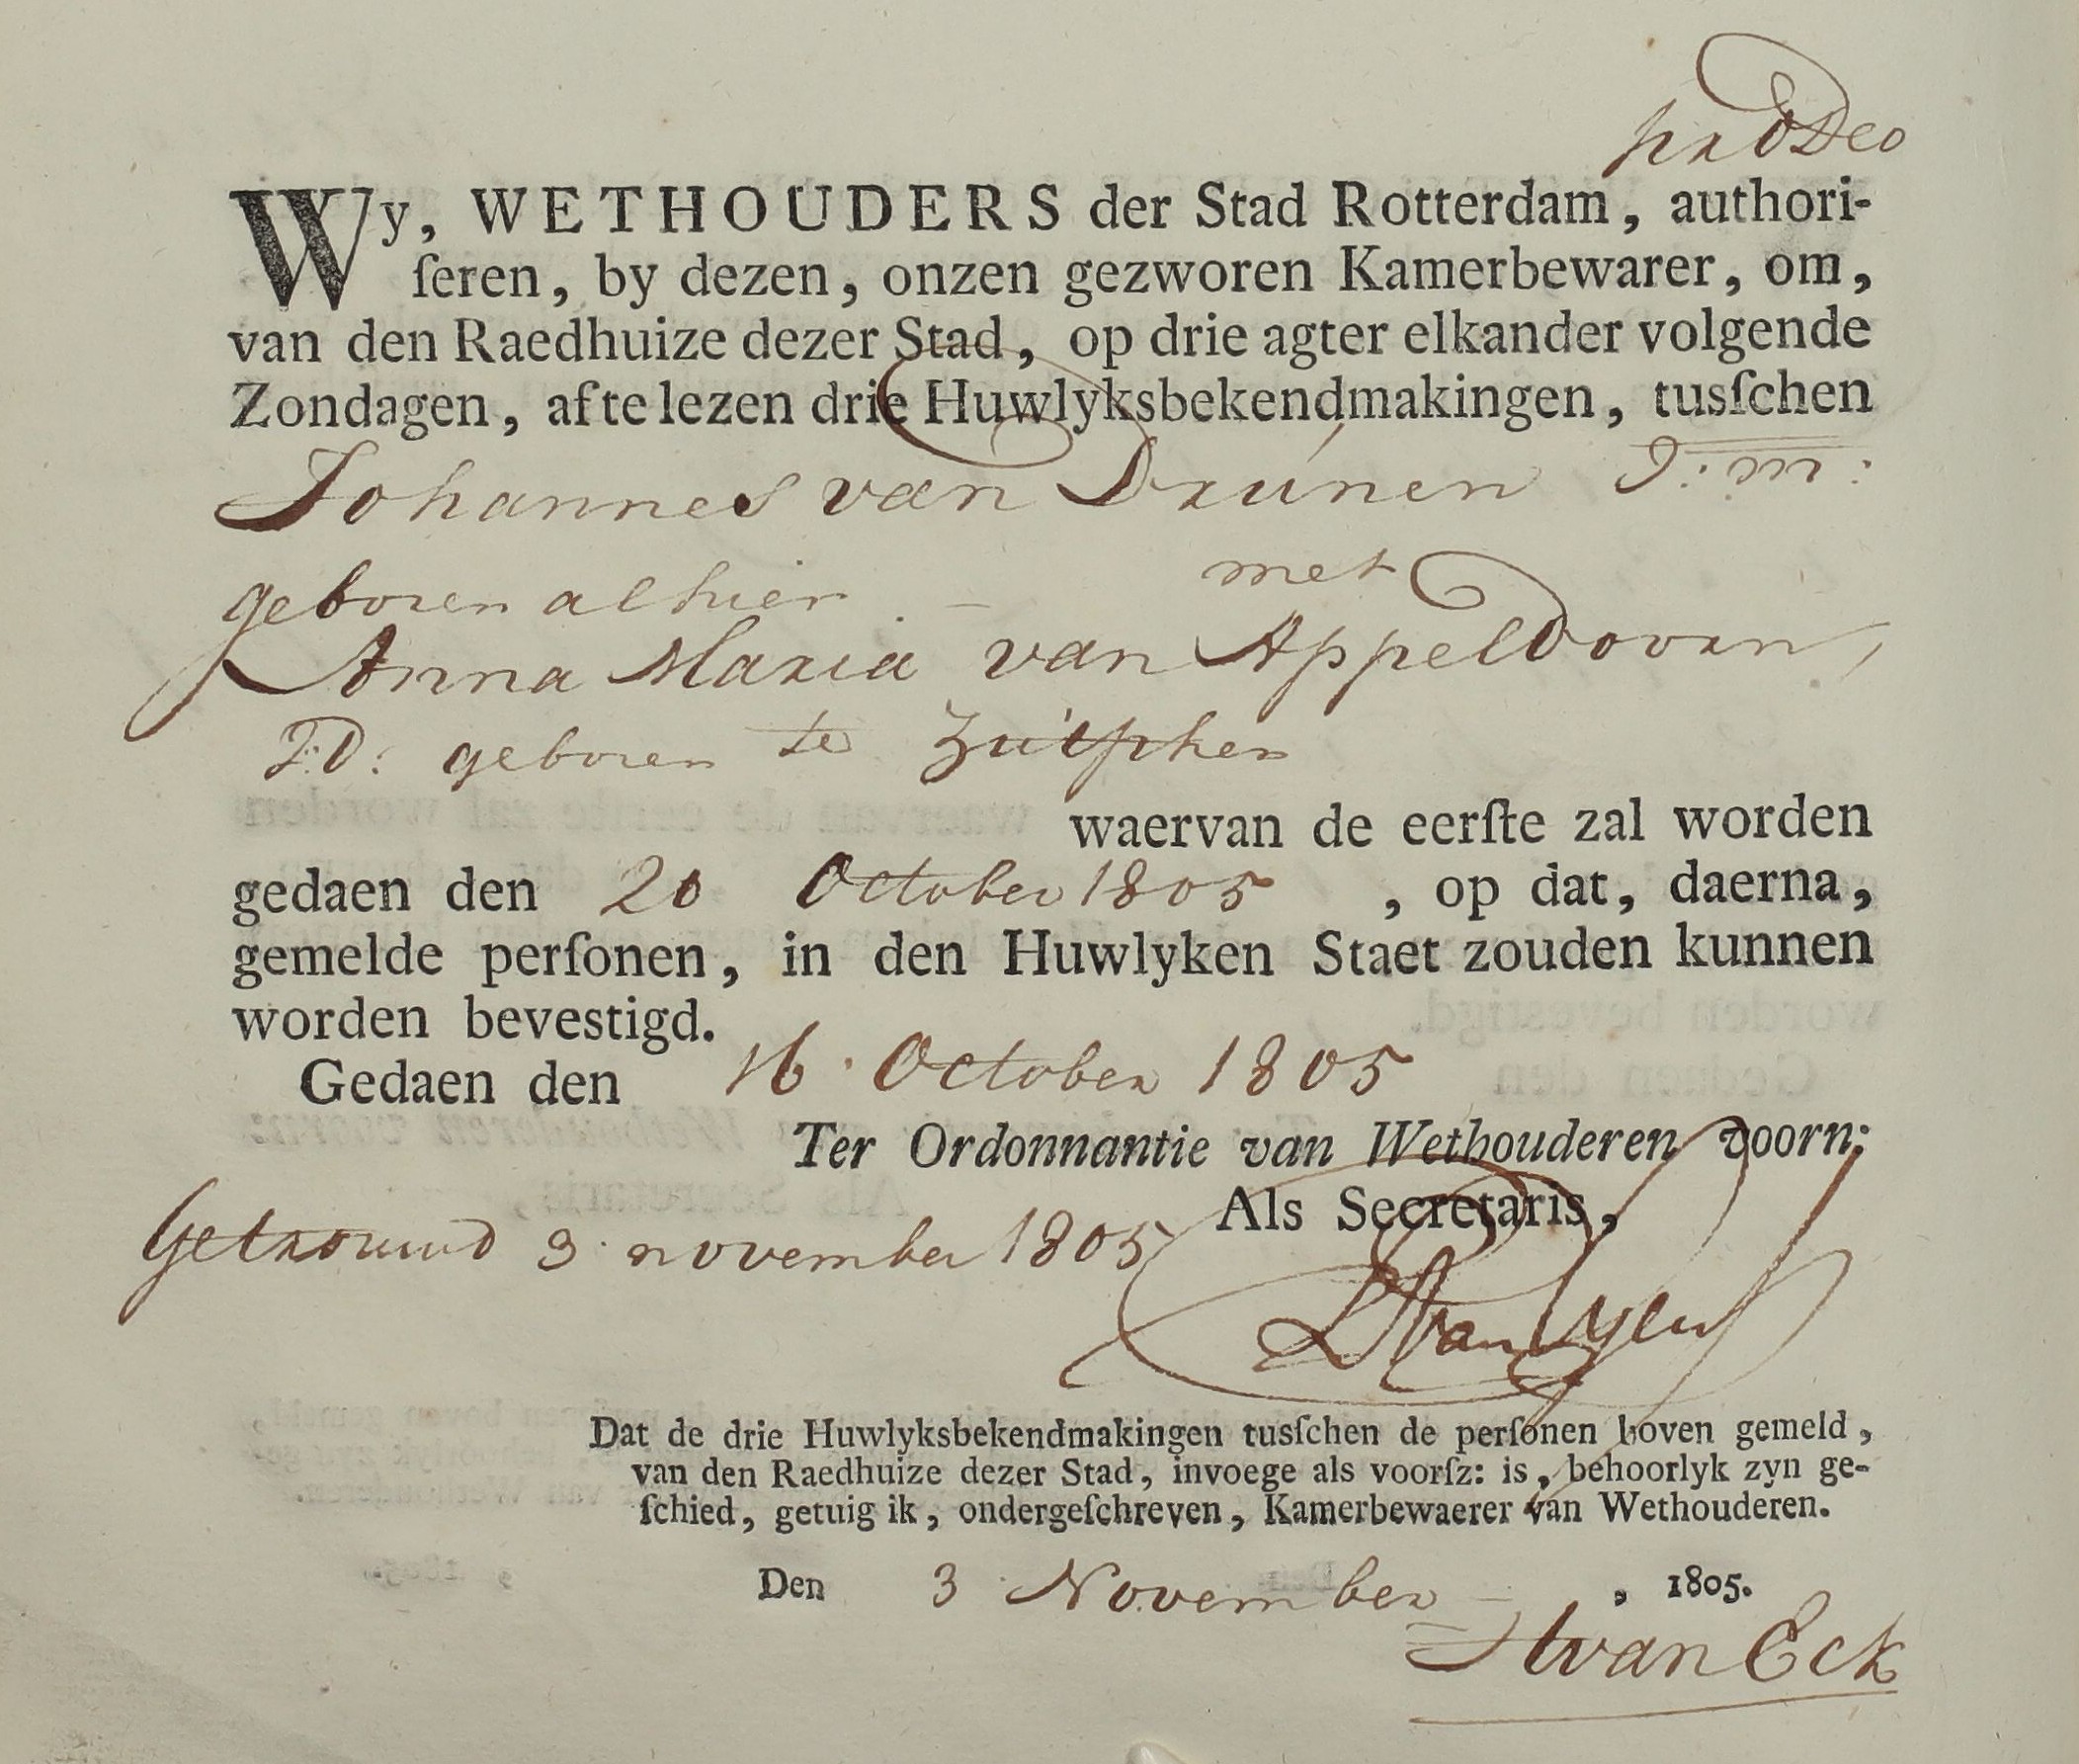 pro Deo
Wy, WETHOUDERS der Stad Rotterdam, authori-
ſeren, by dezen, onzen gezworen Kamerbewarer, om,
van den Raedhuize dezer Stad, op drie agter elkander volgende
Zondagen, af te lezen drie Huwlyksbekendmakingen, tusſchen
Johannes van Drúnen J:m:
geboren alhier - met
Anna Maria van Appeldoorn,
J:D: geboren te Zutphen
waervan de eerſte zal worden
gedaen den 20 October 1805, op dat, daerna,
gemelde perſonen, in den Huwlyken Staet zouden kunnen
worden bevestigd.
Gedaen den 16 October 1805
Ter Ordonnantie van Wethouderen voorn:
Als Secretaris,
Getrouwd 3 november 1805
Dat de drie Huwlyksbekendmakingen tusſchen de perſonen boven gemeld,
van den Raedhuize dezer Stad, invoege als voorſz: is, behoorlyk zyn ge-
ſchied, getuig ik, ondergeſchreven, Kamerbewaerer van Wethouderen.
Den 3 November, 1805.
van Eck